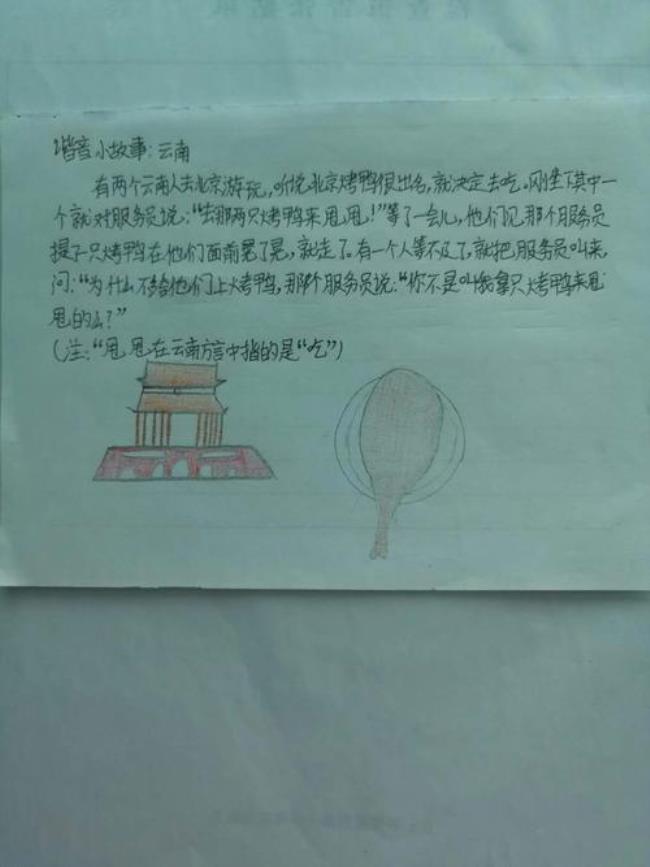 谐音小故事:云南
有两个云南人去北京游玩,听说北京烤鸭很出名,就决定去吃。刚坐下其中一
个就对服务员说:“去那两只烤鸭来甩甩!”等了一会儿,他们见那个服务员
提了一只烤鸭在他们面前晃了晃,就走了。有一个人等不及了,就把服务员叫来,
问:“为什么不给他们上烤鸭,那个服务员说:“你不是叫我拿只烤鸭来甩
甩的么?”
(注:“甩甩在云南方言中指的是“吃”)